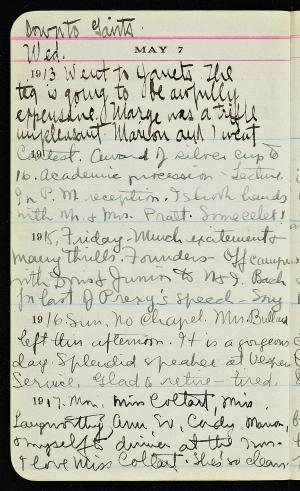 Down to Gaints.
Wed. MAY 7
1913 Went to Janets. The
tea is going to be awfully
expensive. Marge was a trifle
unpleasant. Marion and I went
19 Contest. Award of silver cup to
16. Academic procession - Lecture.
In P.M. reception. I shook hands
with Mr. & Mrs. Pratt. Some celeb!
1915, Friday - Much excitement &
many thrills. Founders - Off campus
with Dons & Junior to N. I. Back
for last of Prexy's speech - Song
1916. Sun. No chapel. Mrs. Bullard
left this afternoon. It is a gorgeous
day. Splendid speaker at Vesper
Service. Glad to retire - tired.
1917. Mon. Miss Coltart, Miss
Langworthy Ann W, Cordy, Marion,
& myself to dinner at the Inn.
I love Miss Coltart. She's so clean.